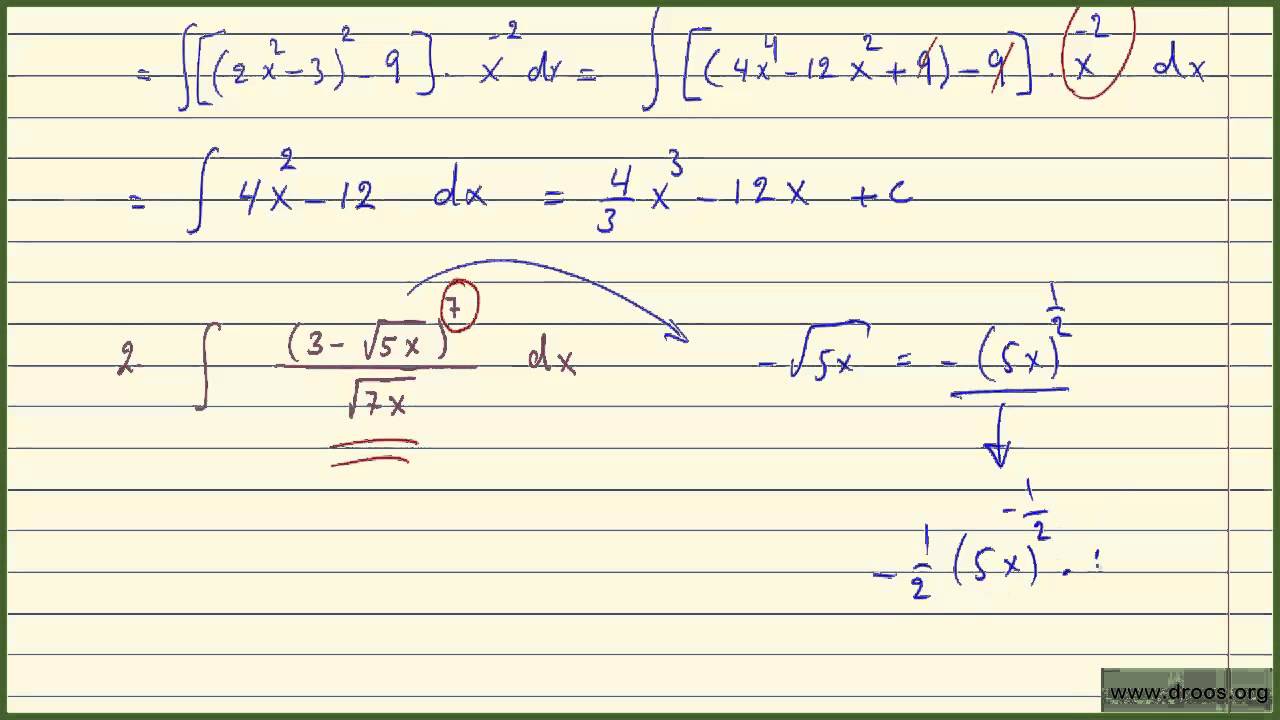 = ∫[(2x²-3)²-9]. x⁻² dx = ∫[(4x⁴-12x²+9)-9]. x⁻² dx
= ∫ 4x²-12 dx = 4/3 x³ - 12x + c
2. ∫ (3-√5x)⁷/√7x dx
-√5x = -(5x)^1/2
-1/2 (5x)^-1/2 .
www.droos.org